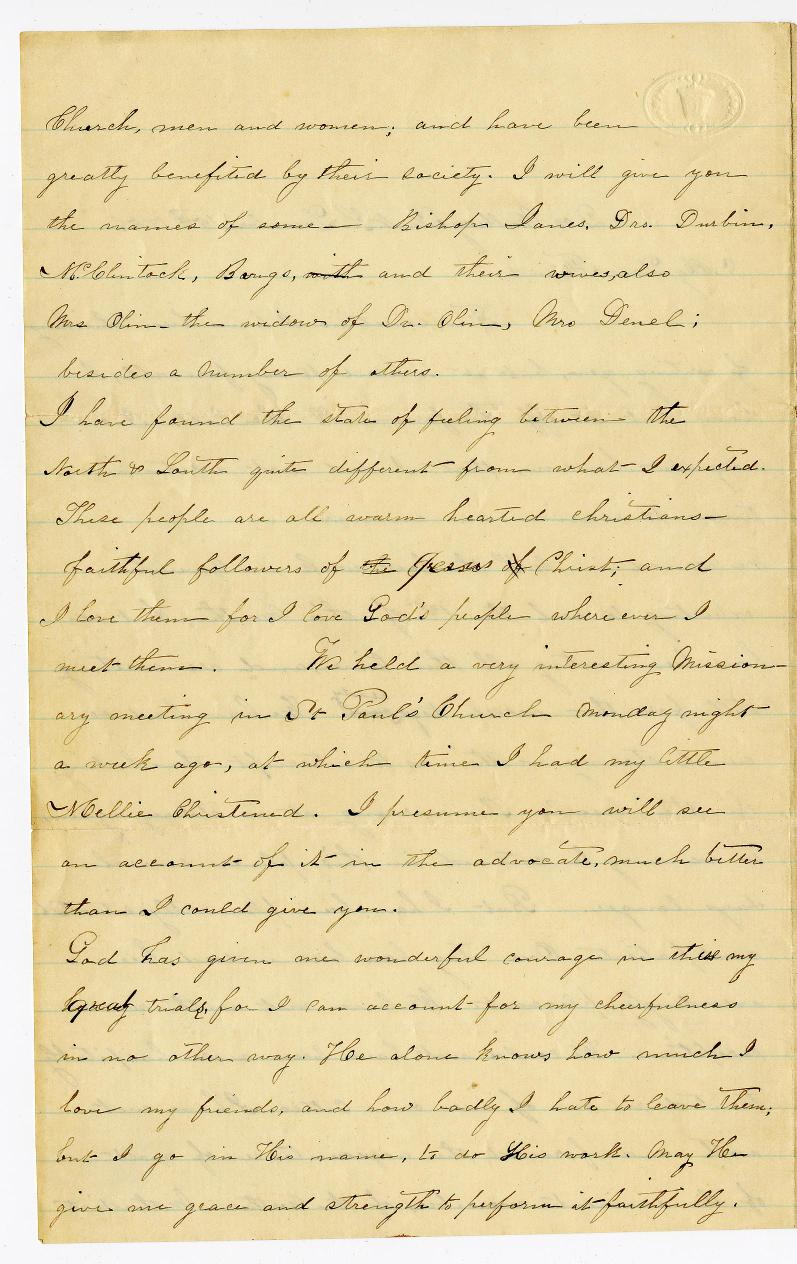 Church, men and women; and have been
greatly benefited by their society. I will give you
the names of some — Bishop Janes, Drs. Durbin,
McClintock, Bangs, with and their wives, also
Mrs Olin — the widow of Dr. Olin, Mrs
besides a number of others.
I have found the state of feeling between the
North & South quite different from what I expected.
These people are all warm hearted christians —
faithful followers of the Jesus of Christ; and
I love them for I love God's people where ever I
meet them. We held a very interesting Mission-
ary meeting in St Paul's Church Monday night
a week ago, at which time I had my little
Mellie Christened. I presume you will see
an account of it in the advocate, much better
than I could give you.
God has given me wonderful courage in this my
great trial, for I can account for my cheerfulness
in no other way. He alone knows how much I
love my friends, and how badly I hate to leave them;
but I go in His name, to do His work. May He
give me grace and strength to perform it faithfully.